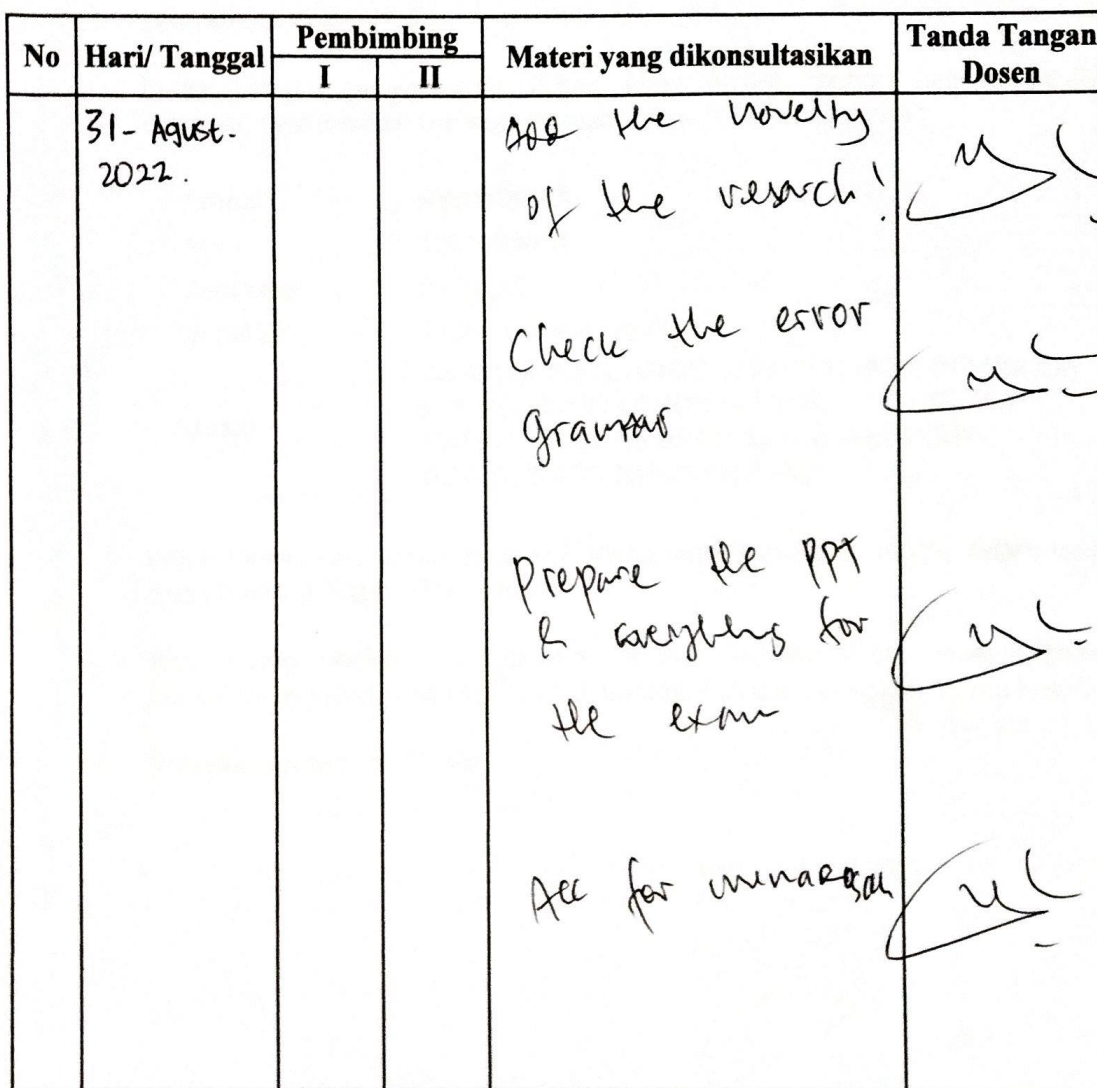 No Hari/ Tanggal Pembimbing Materi yang dikonsultasikan Tanda Tangan
I II Dosen
31 - Agust.
2022.
Add the novelty
of the research!
Check the error
Grammar
Prepare the PPT
& everything for
the exam
Acc for munaqosah